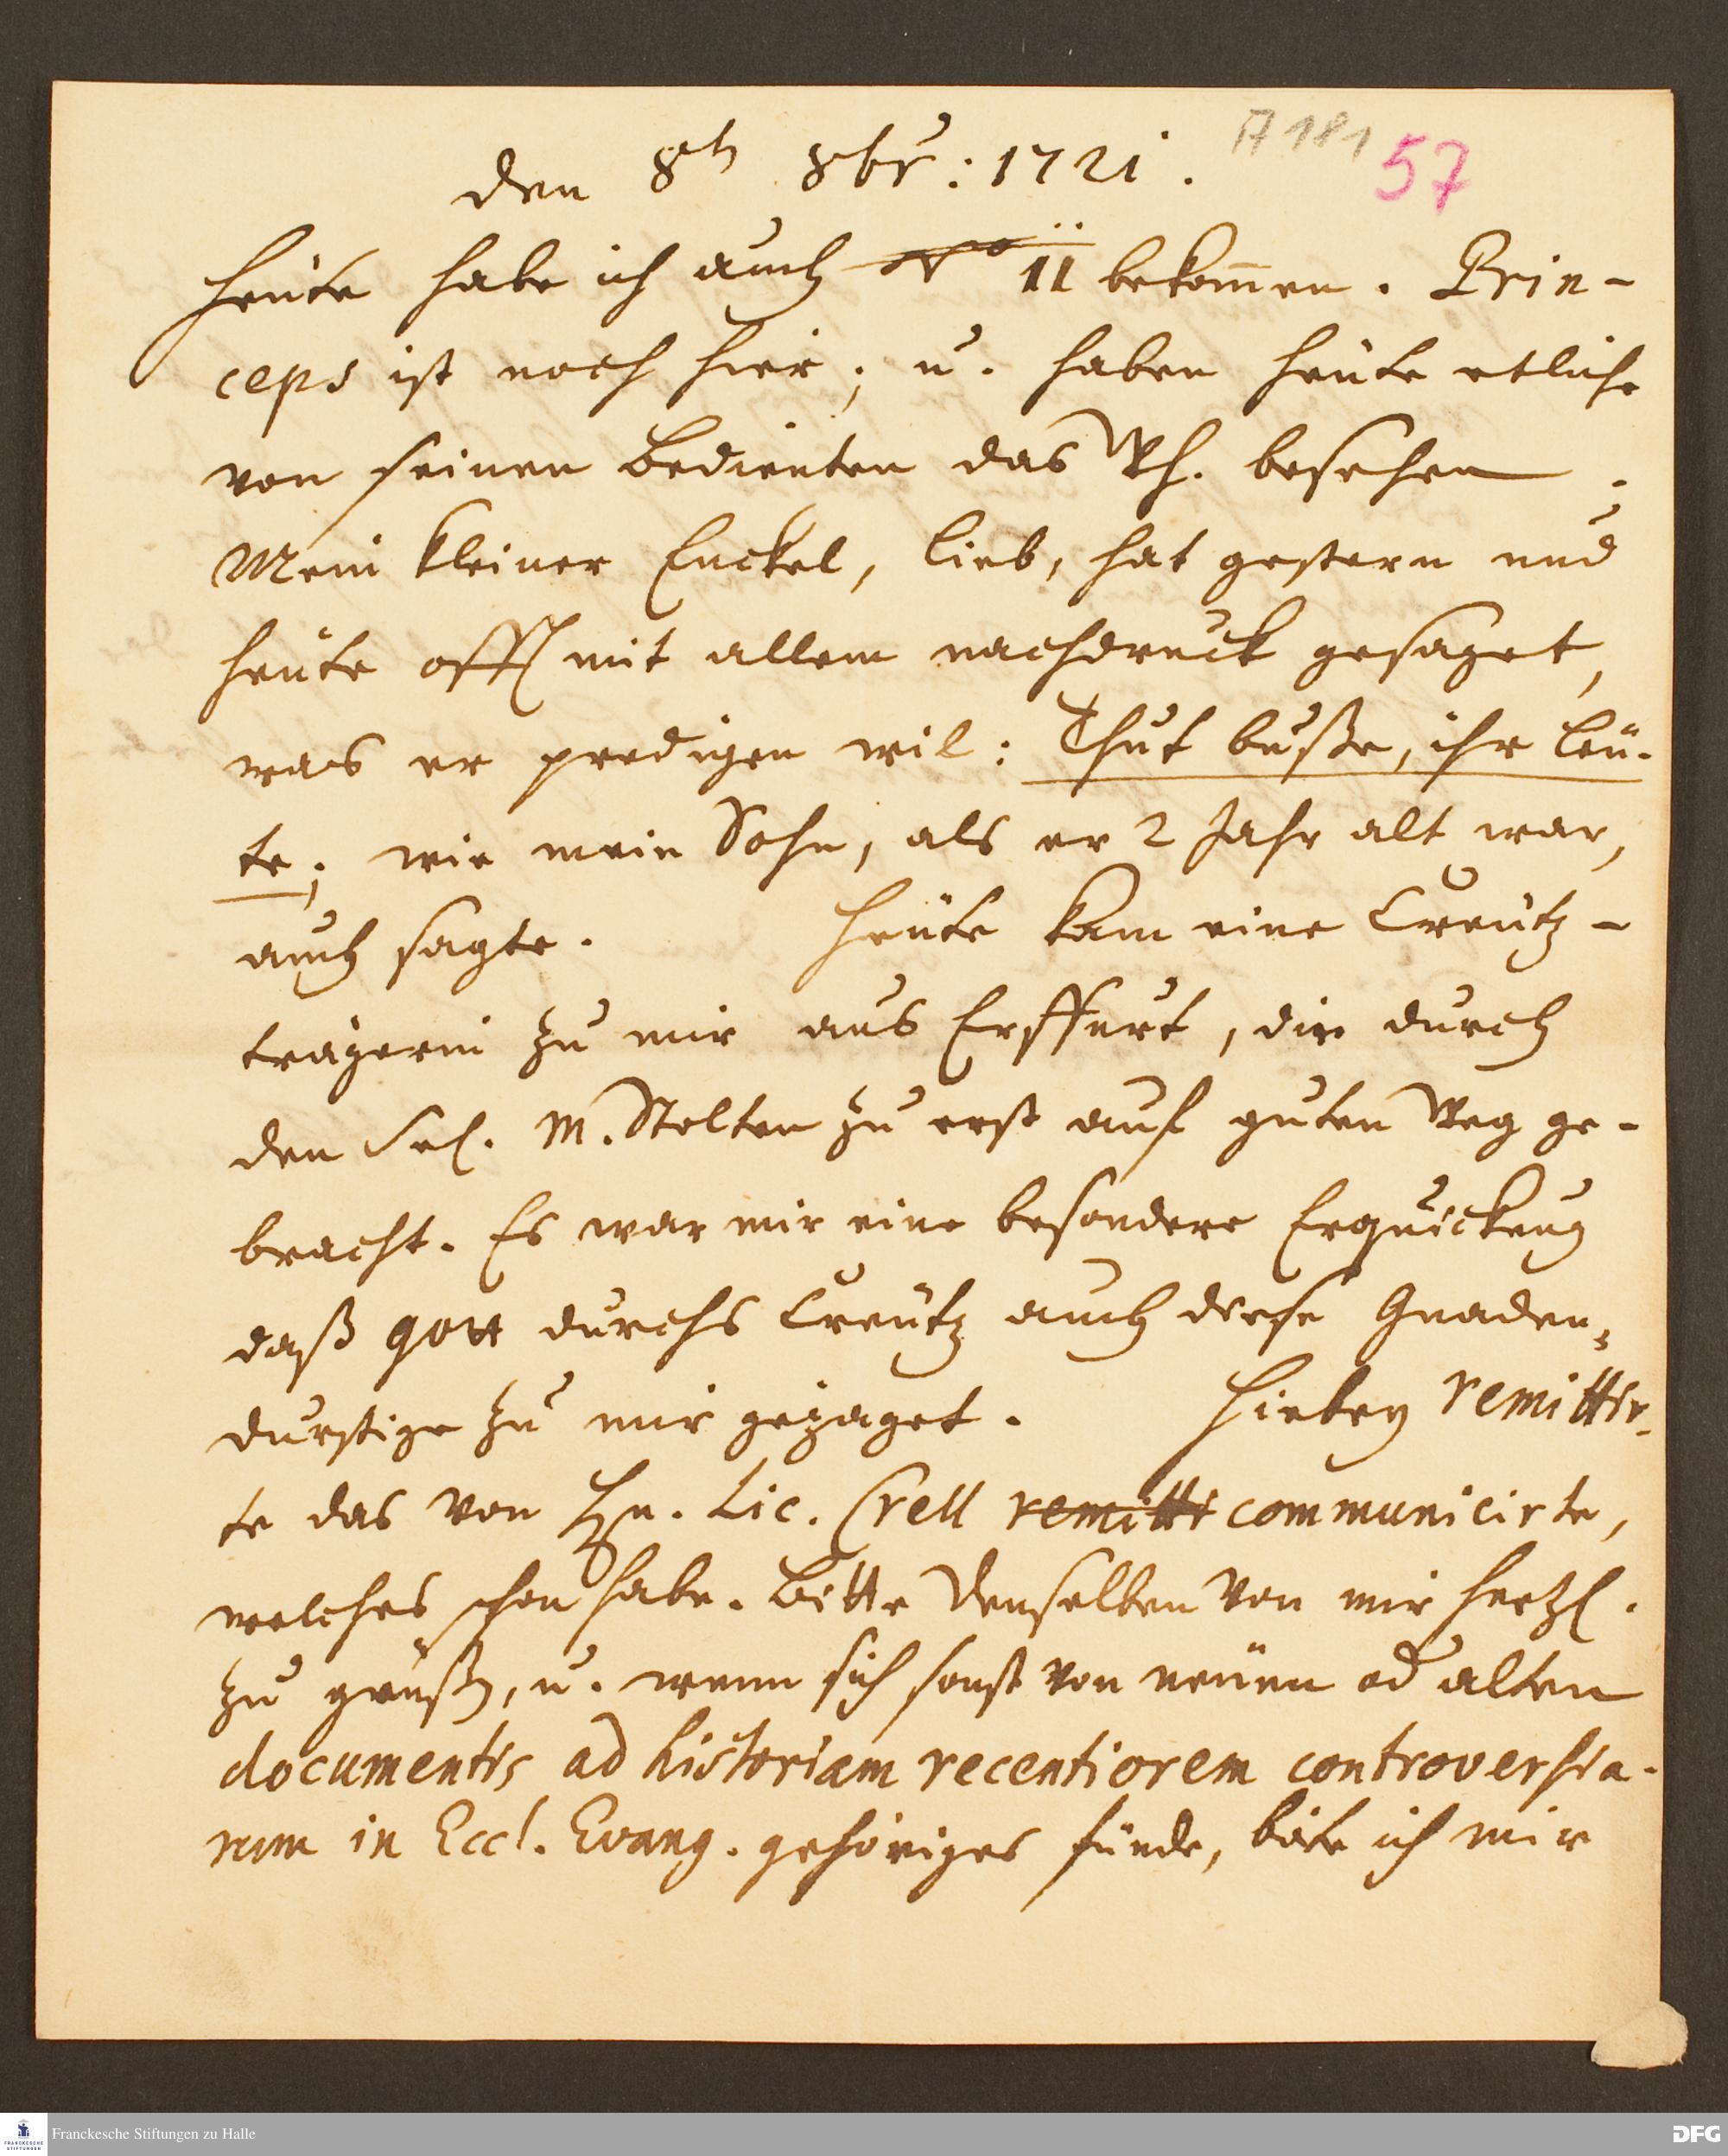 A 181
57
den 8t 8br: 1721.
Heüte habe ich auch No 11 bekom̄en. Prin-
ceps ist noch hier; u. haben heüte etliche
von seinen Bedienten das Wh. besehen.
Mein kleiner Enckel, lieb, hat gestern und
heüte offt mit allem nachdruck gesaget,
was er predigen wil: Thut buße, ihr leü-
te; wie mein Sohn, als er 2 Jahr alt war,
auch sagte. Heüte kam eine Creütz-
trägerin zu mir aus Erffurt, die durch
den Sel. M. Stolten zu erst auf guten Weg ge-
bracht. Es war mir eine besondere Erquickung
daß Gott durchs Creütz auch diese Gnaden-
durstige zu mir gejaget. Hiebey remittir-
te das von Hn. Lic. Crell remitti communicirte,
welches schon habe. Bitte denselben von mir hertzl.
zu grüßen, u. wenn sich sonst von neüen od alten
documentis ad historiam recentiorem controversia-
rum in Eccl. Evang. gehöriges fünde, bäte ich mir
Franckesche Stiftungen zu Halle
FRANCKESCHE
STIFTUNGEN
DFG